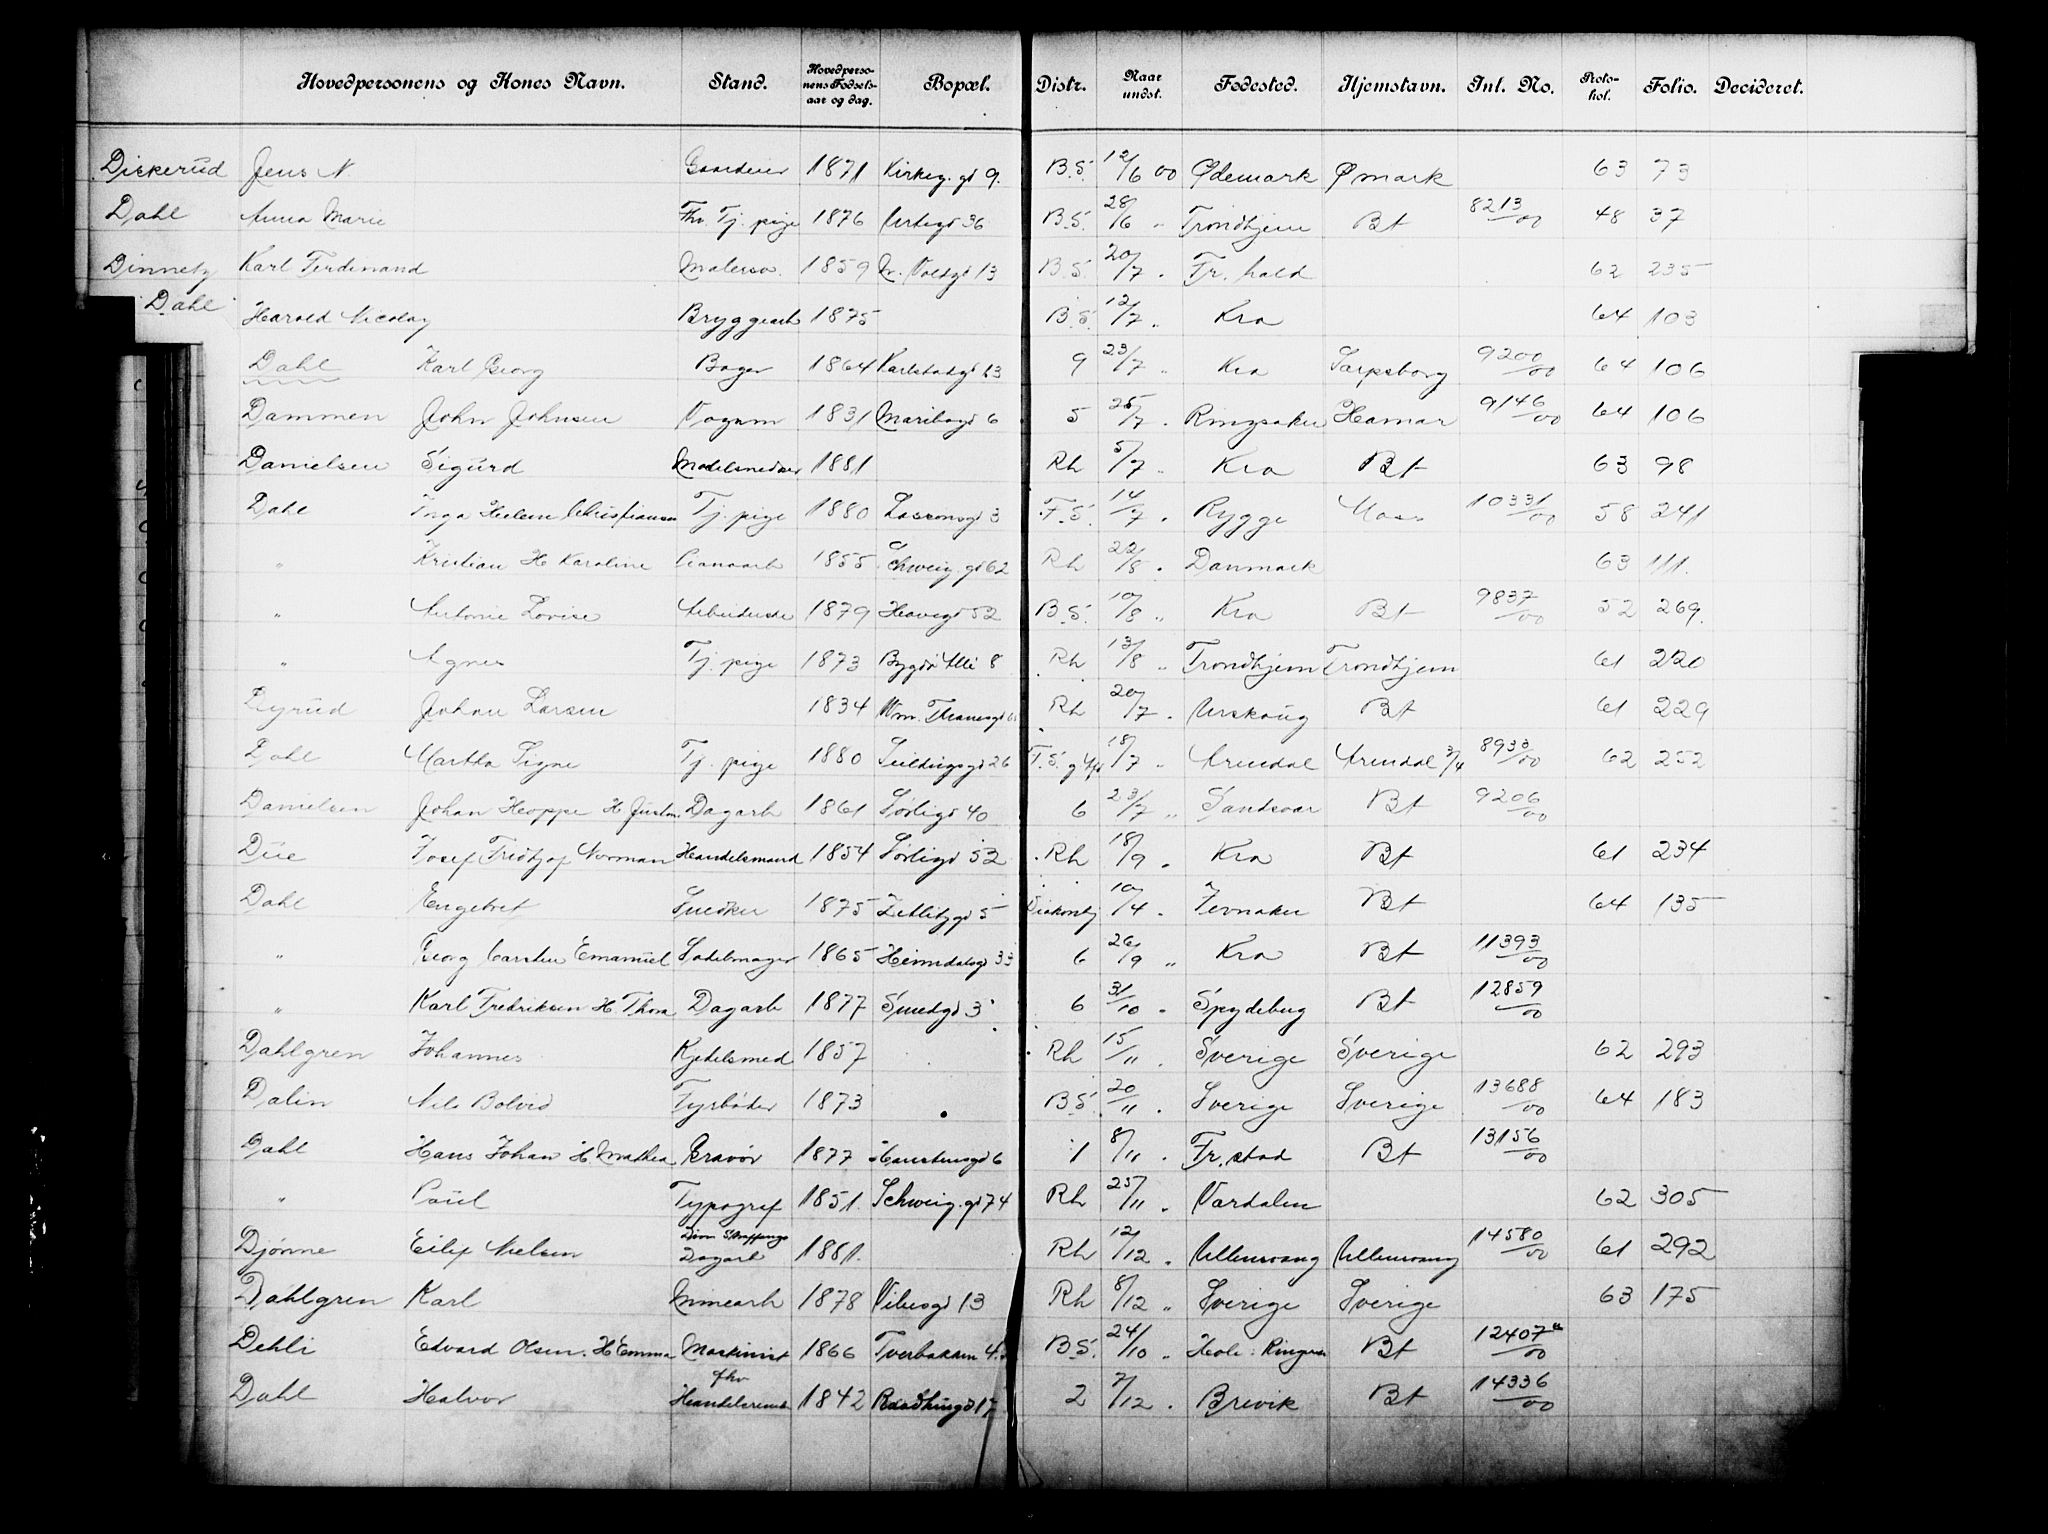 Hovedpersonens og Kones Navn. Stand. Hovedperso-nens Fødsels-aar og dag. Bopæl. Distr. Naar undst. Fødested. Hjemstavn. Inl. No. Proto-kol. Folio. Decideret.
Diskerud Jens N Gaardeier 1871 Kirkeg. gd 9. B.S. 12/6 00 Ødemark Ømark 63 73
Dahl Anna Marie Fhv. Tj. pige 1876 Urtegd 36 B.S. 28/6 " Trondhjem Bt 8213/00 48 37
Dinnetz Karl Ferdinand Malersv. 1859 N. Voldgd 13 B.S. 20/7 " Fr. hald 62 235
Dahl Harald Nicolay Bryggearb 1875 B.S. 12/7 " Kra 64 103
Dahl Karl Georg Bager 1864 Karlstadgd 13 9 23/7 " Kra Sarpsborg 9200/00 64 106
Dammen John Johnsen Vognm 1831 Maribogd 6 5 25/7 " Ringsaker Hamar 9146/00 64 106
Danielsen Sigurd 1881 Rh 5/7 " Kra Bt 63 98
Dahl Inga Helene Christiansen Tj. pige 1880 Lassonsgd 3 F.S. 14/7 " Rygge Moss 10331/00 58 241
" Kristian H Karoline Pianoarb 1855 Schweig. gd 62 Rh 22/8 " Danmark 63 111.
" Antonie Lovise Arbeiderske 1879 Heavegd 52 B.S. 10/8 " Kra Bt 9837/00 52 269.
" Agnes Tj. pige 1873 Bygdø Alle 8 Rh 13/8 " Trondhjem Trondhjem 61 220
Dyrud Johan Larsen 1834 Wm. Thranesgd Rh 20/7 " Urskoug Bt 61 229
Dahl Martha Signe Tj. pige 1880 Seildugsgd 26 F.S. 18/7 " Arendal Arendal 3/4 8933/00 62 252
Danielsen Johan Hoppe H Dagarb 1861 Sørligd 40 6 23/7 " Sandsvær Bt 9206/00
Due Josef Fridtjof Norman Handelsmand 1854 Sørligd 52 Rh 18/9 " Kra Bt 61 234
Dahl Engebret Snedker 1875 Zetlitzgd 5 Diakonhj 10/4 " Jevnaker Bt 64 135
" Georg Carsten Emanuel Sadelmager 1865 Heimdalsgd 33 6 26/9 " Kra Bt 11393/00
" Karl Fredriksen H. Thora Dagarb 1877 Smedgd 3 6 31/10 " Spydeberg Bt 12859/00
Dahlgren Johannes Kjedelsmed 1857 Rh 15/11 " Sverige Sverige 62 293
Dalin Nils Bolvid Fyrbøder 1873 B.S. 20/11 " Sverige Sverige 13688/00 64 183
Dahl Hans Johan H. Mathea Gravør 1877 Haustensgd 6 1 8/11 " Fr. stad Bt 13156/00
" Paul Typograf 1851. Schweig. gd 74 Rh 25/11 " Værdalen 62 305
Djønne Eilif Nielsen Dagarb 1881. Rh 12/12 " Ullensvang Ullensvang 14580/00 61 292
Dahlgren Karl Minearb 1878 Vibesgd 13 Rh 8/12 " Sverige Sverige 63 175
Dehli Edvard Olsen. H Emma Maskinist 1866 Tverbakken 4. B.S. 24/10 " Hole: Ringer Bt 12407/00
Dahl Halvor fhv Handelsrend 1842 Raadhusgd 17 2 7/12 " Brevik Bt 14336/00